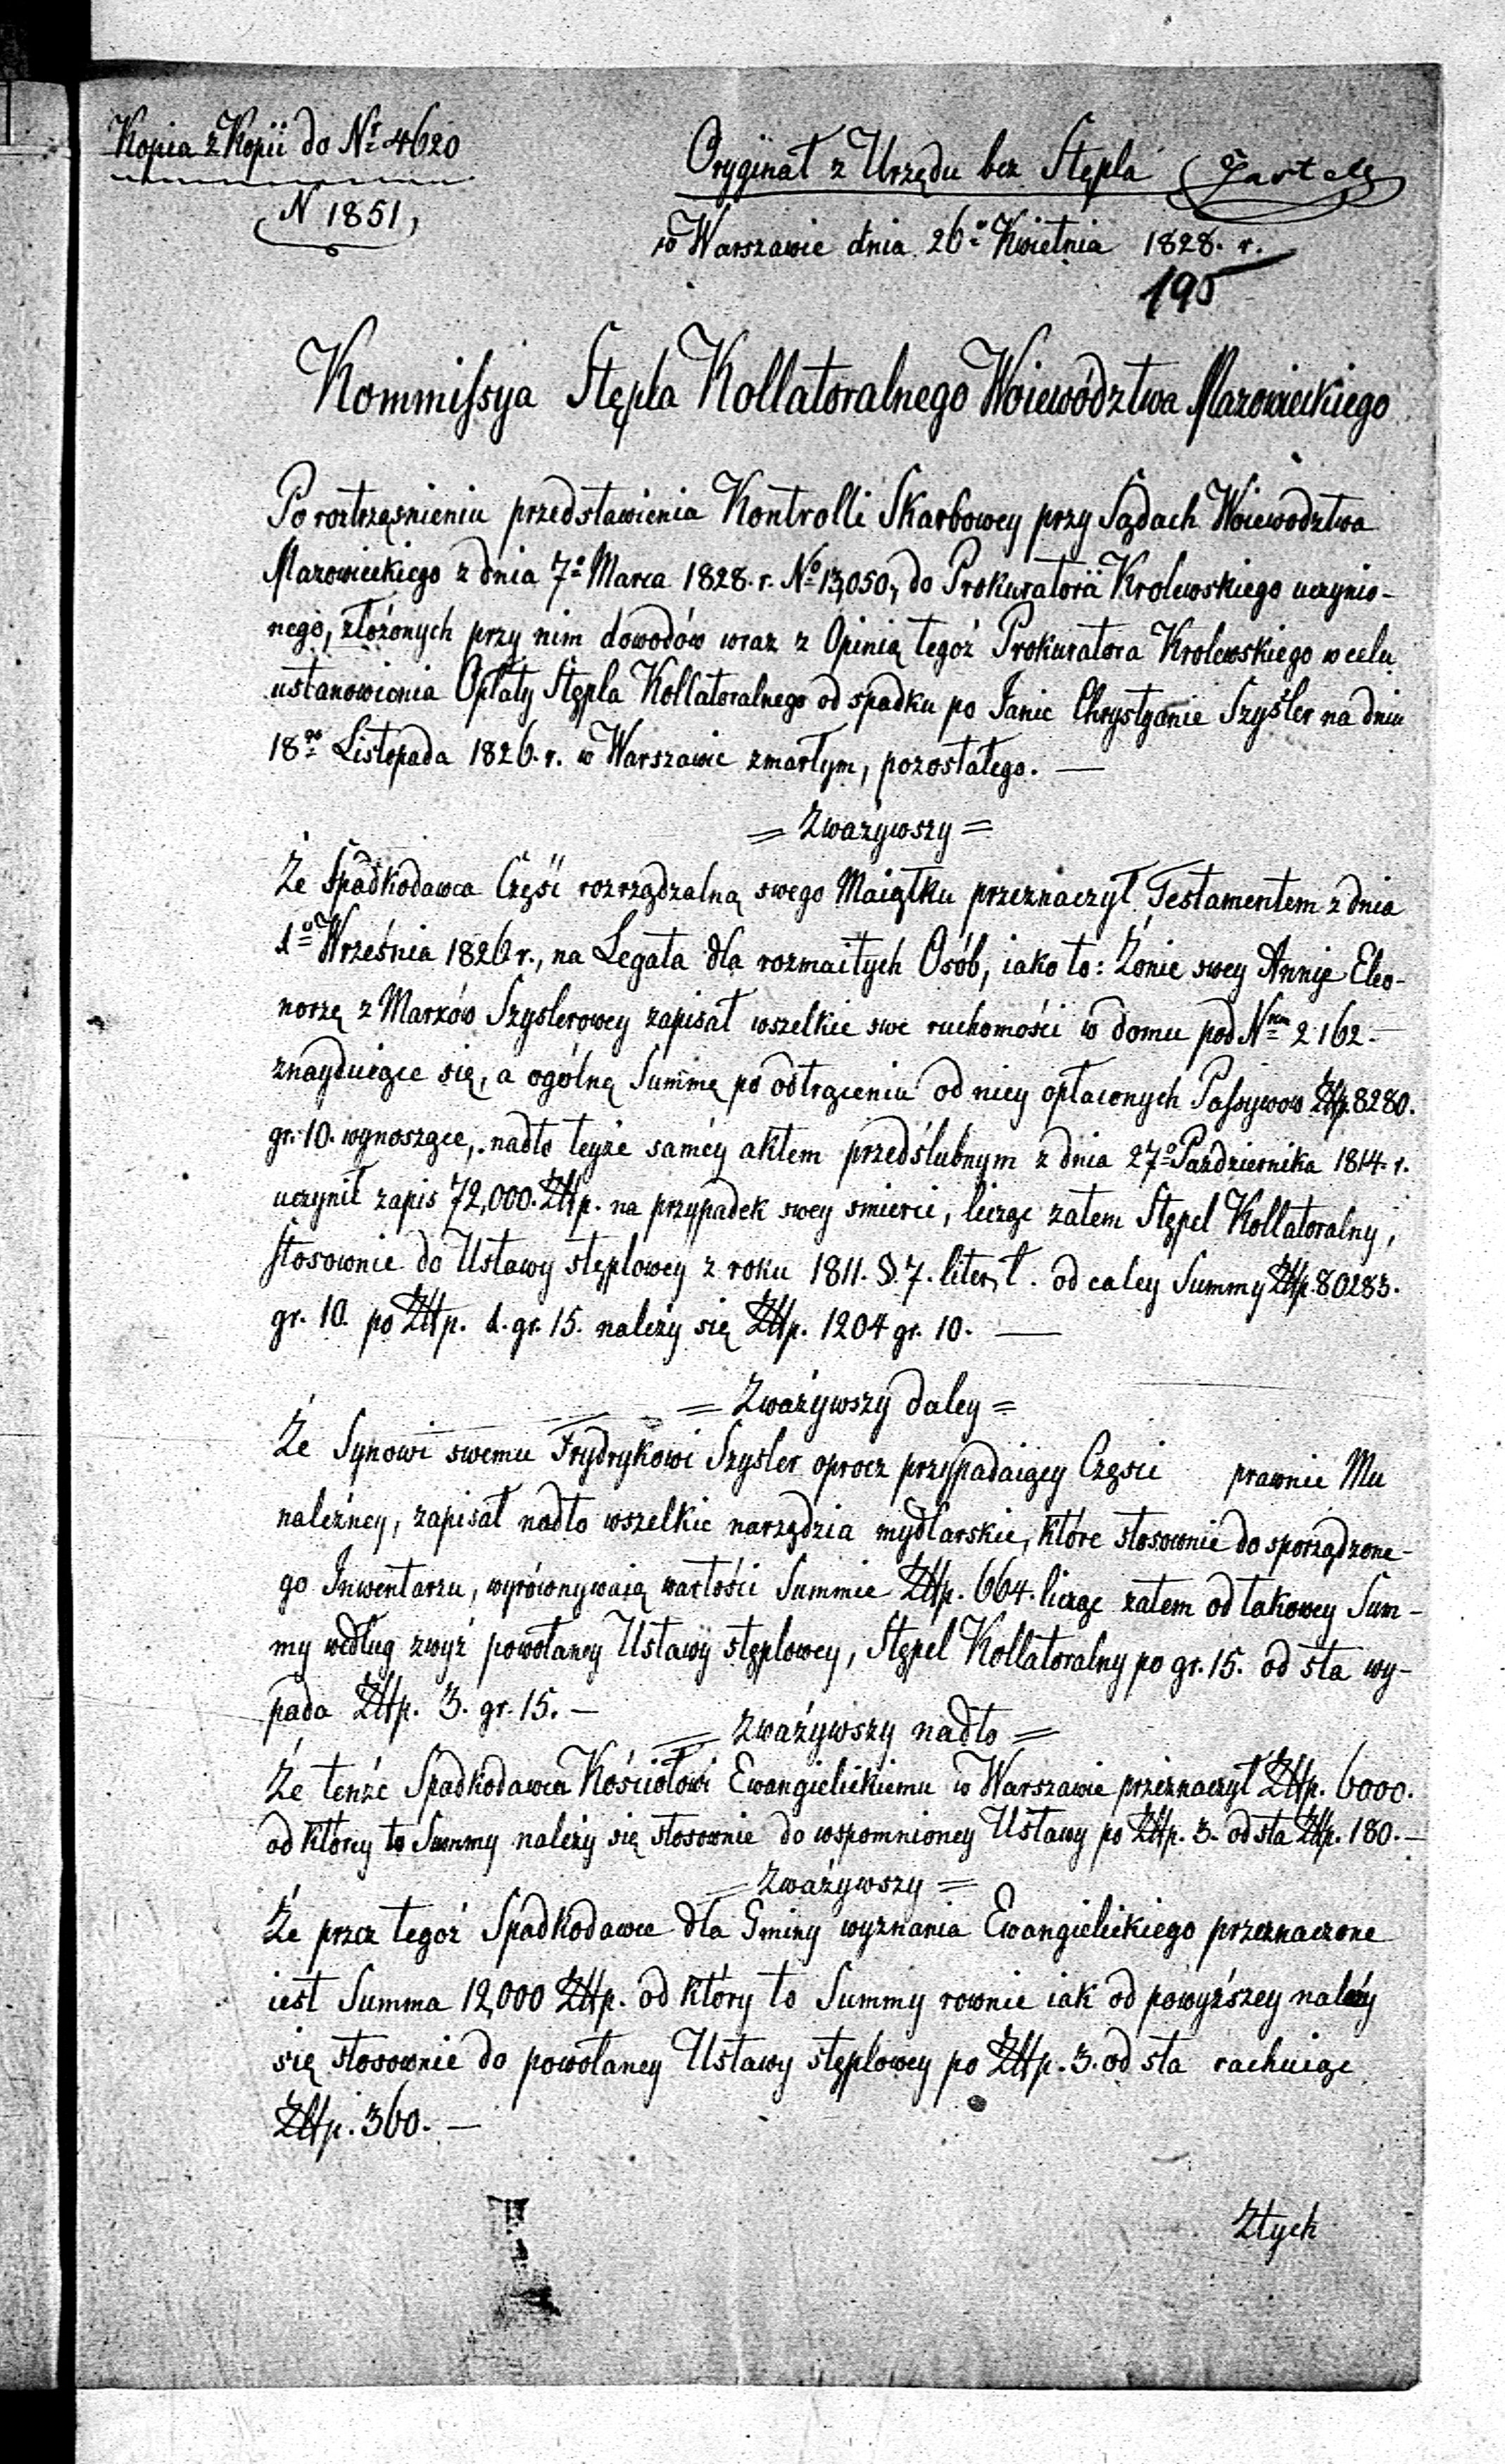 Kopia z Kopii do Nr 4620
N 1851,
Oryginał z Urzędu bez Stępla
w Warszawie dnia 26º Kwietnia 1828. r.
195
Kommissya Stępla Kollatoralnego Woiewództwa Mazowieckiego
Po roztrząśnieniu przedstawienia Kontrolli Skarbowey przy Sądach Woiewodztwa
Mazowieckiego z dnia 7º Marca 1828. r. Nº 13,050, do Prokuratora Krolewskiego uczynio-
nego, złożonych przy nim dowodów wraz z Opinią tegoż Prokuratora Krolewskiego w celu
ustanowienia Opłaty Stępla Kollatoralnego od spadku po Janie Chrystyanie Szyśler na dniu
18go Listopada 1826. r. w Warszawie zmarłym, pozostałego. —
= Zważywszy =
Że Spadkodawca Część rozrządzalną swego Maiątku przeznaczył Testamentem z dnia
1º Września 1826 r., na Legata dla rozmaitych Osób, iako to: Żonie swey Annie Eleo-
norzę z Marxów Szyslerowey zapisał wszelkie swe ruchomości w domu pod Nrem 2162. —
znayduiące się, a ogólną Summę po odtrąceniu od niey opłaconych Passywow Złlp. 8280.
gr. 10. wynoszące, nadto teyże saméy aktem przedślubnym z dnia 27º Października 1814. r.
uczynił zapis 72,000. Złlp. na przypadek swey smierci, licząc zatem Stępel Kollatoralny,
stosownie do Ustawy stęplowey z roku 1811. §. 7. liter. t. od całey Summy Złlp. 80283.
gr. 10. po Złlp. 1. gr. 15. należy się Złlp. 1204 gr. 10. —
= Zważywszy daley =
Że Synowi swemu Frydrykowi Szysler oprocz przypadaiącey Częsci prawnie Mu
należney, zapisał nadto wszelkie narzędzia mydlarskie, które stosownie do sporządzone-
go Inwentarzu, wyrównywaią wartości Summie Złlp. 664. licząc zatem od takowey Sum-
my według zwyż powołaney Ustawy stęplowey, Stępel Kollatoralny po gr. 15. od sta wy-
pada Złlp. 3. gr. 15. —
= Zważywszy nadto =
Że tenże Spadkodawca Kościołowi Ewangielickiemu w Warszawie przeznaczył Złlp. 6000.
od ktorey to Summy należy się stosownie do wspomnioney Ustawy po Złlp. 3. od sta Złlp. 180. —
= Zważywszy =
Że przez tegoż Spadkodawce dla Gminy wyznania Ewangielickiego przeznaczone
iest Summa 12,000 Złlp. od który to Summy rownie iak od powyższey należy
się stosownie do powołaney Ustawy stęplowey po Złlp. 3. od sta rachuiąc
Złlp. 360. —
Ztych